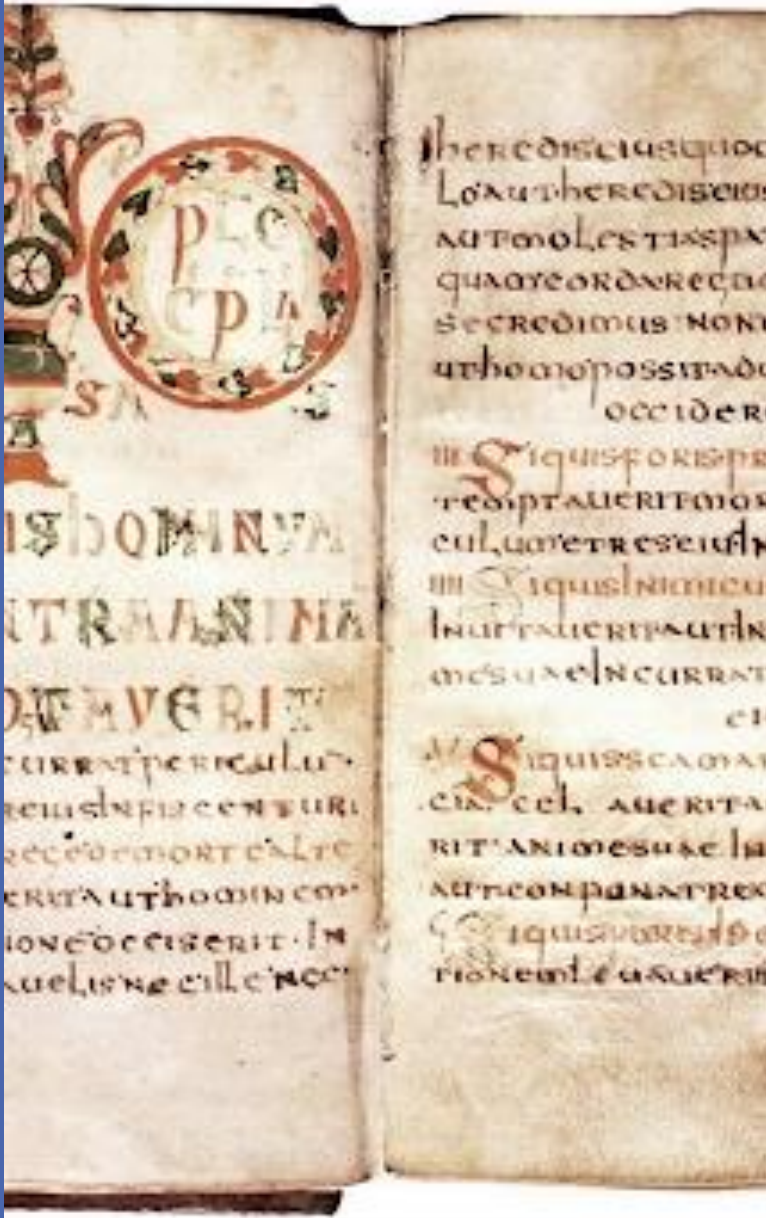 SA S
ISHOMINVM
NTRAANIMA
AVERIT
CURRATPERICULU
REIUSINFISCENTURI
MORTEALTE
ERITAUTHOMINEM
IONEOCCISERIT·IN
AUELISNECILLENEC
herediseiusquod
loautherediseius
autmolestiaspa
secredimus non
uthomopossitadu
occidere
III Siquisforispr
temptaueritmor
culumetreseiusin
IIII Siquisinimicu
inuitaueritautin
mesuaeincurrat
ei
V Siquisscamar
cia. cel. auerita
rit animesuae in
autconponatrex
Siquis
tionemleuauerit